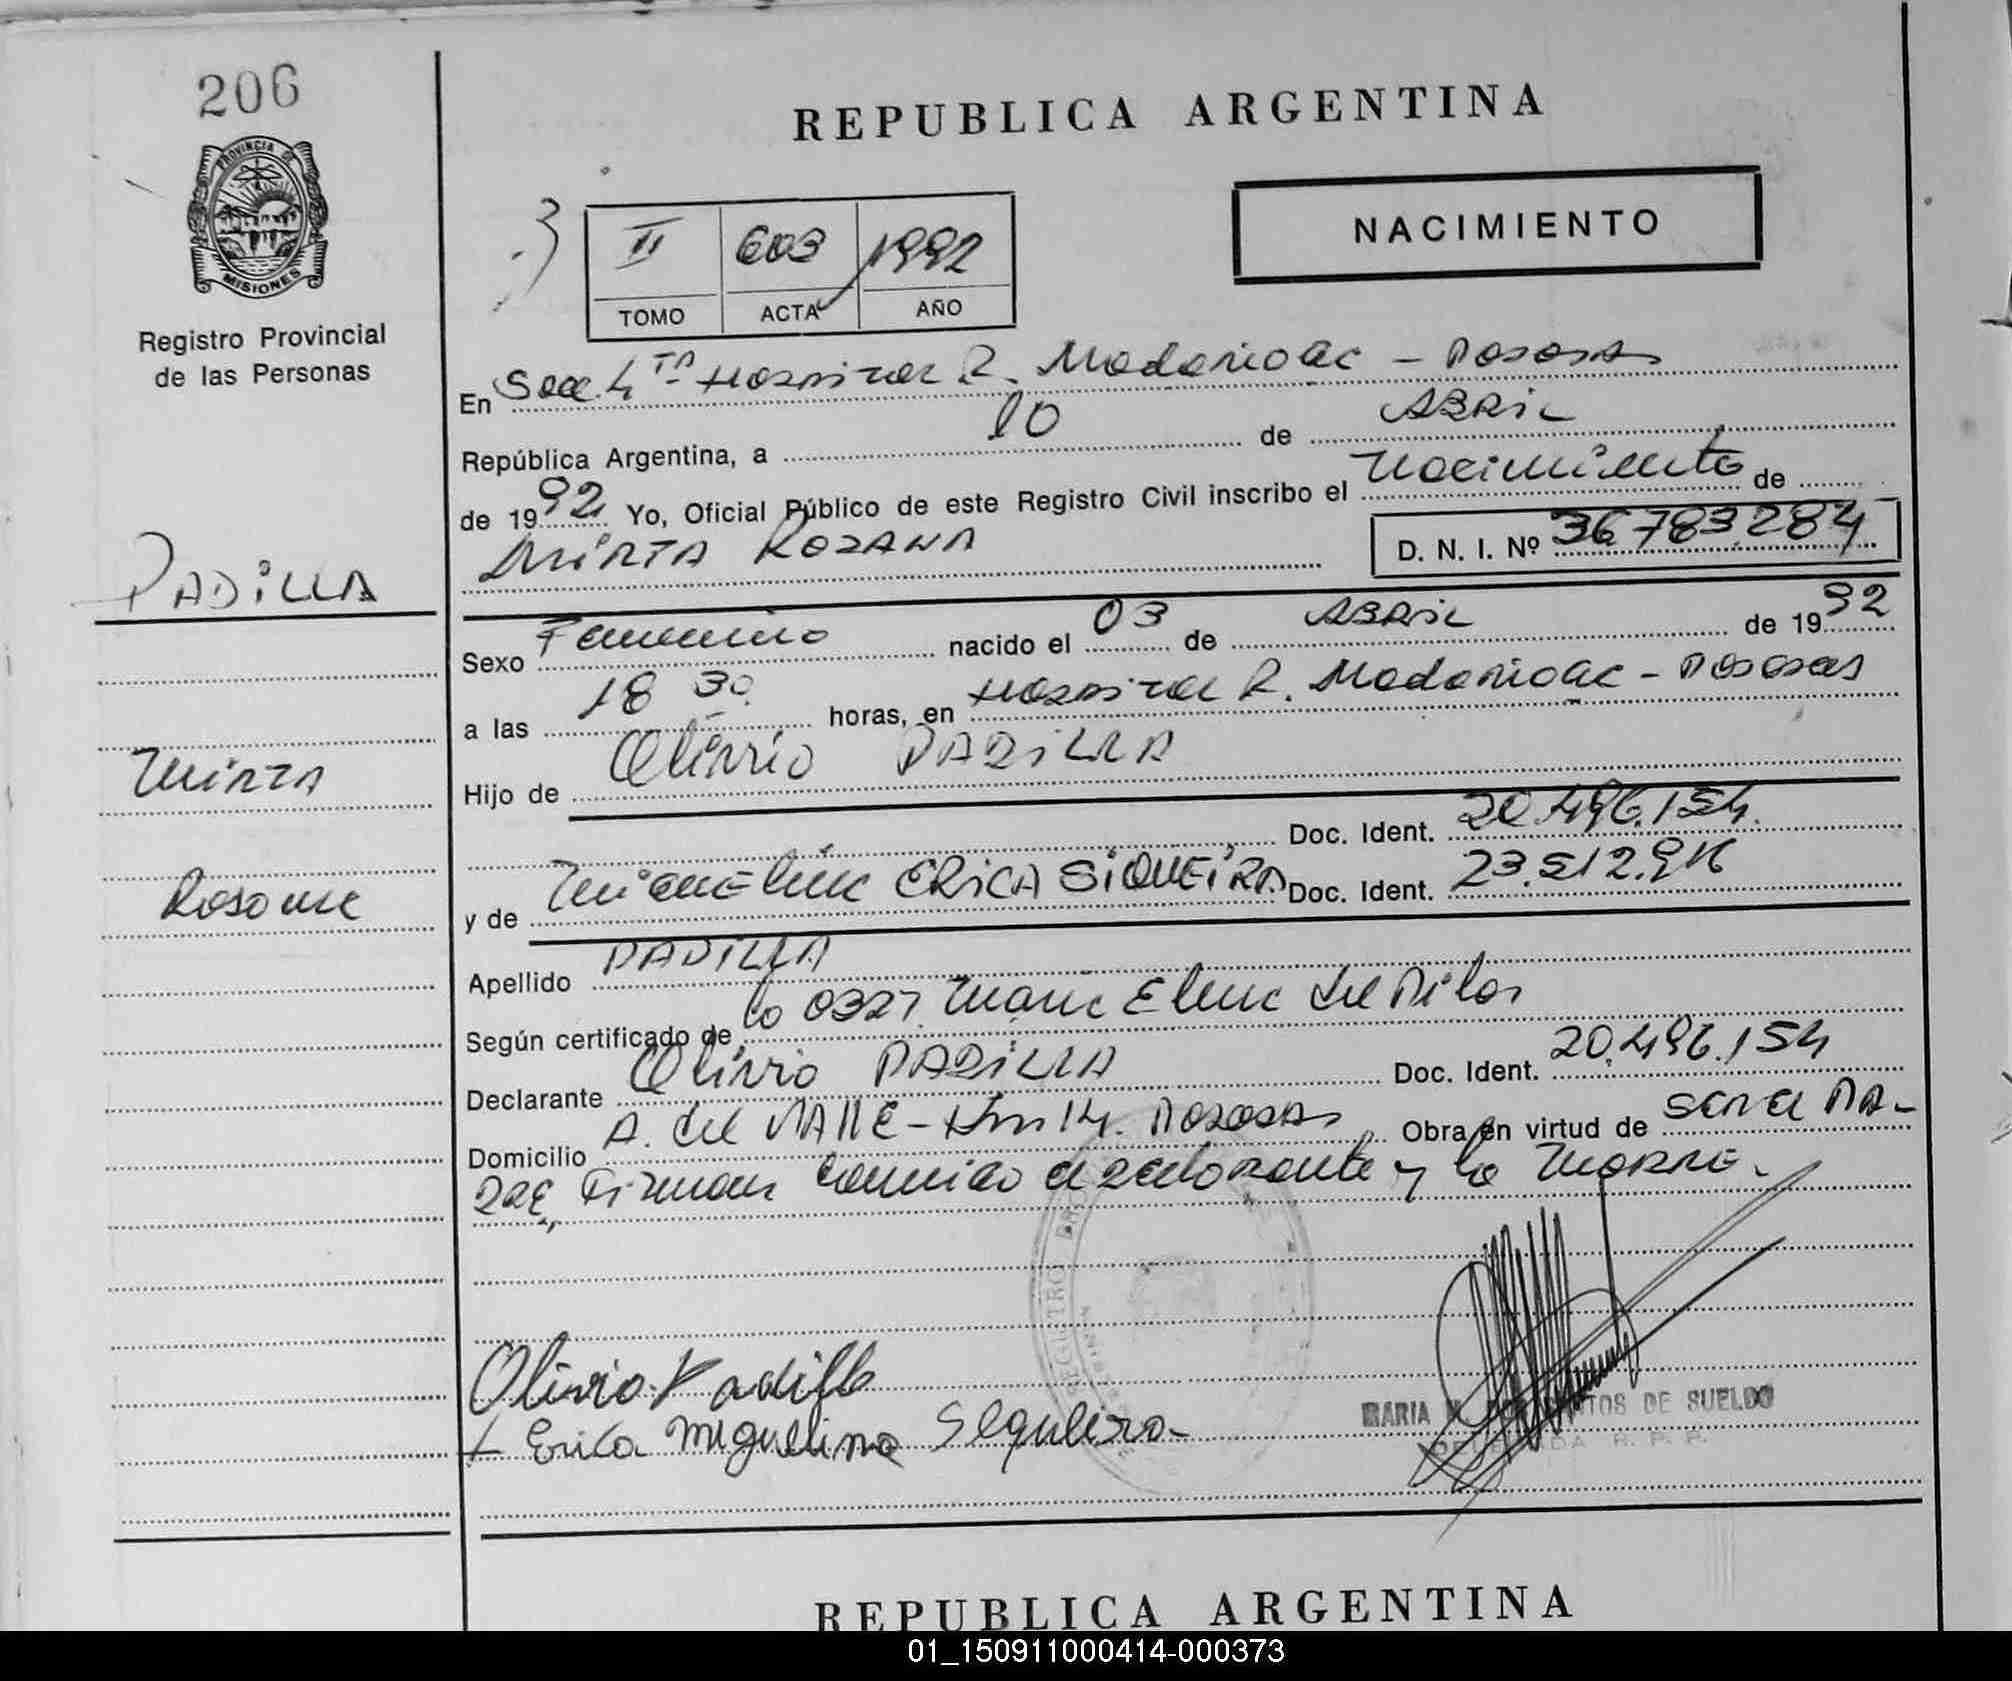 206
REPUBLICA ARGENTINA
PROVINCIA DE
MISIONES
Registro Provincial
de las Personas
II 603 1992
TOMO ACTA AÑO
NACIMIENTO
En Secc. 4ta Hospital R. Madariaga - Posadas
República Argentina, a 10 de ABRIL
de 1992 Yo, Oficial Público de este Registro Civil inscribo el Nacimiento de
MIRTA ROZANA
D. N. I. Nº 36.783.284
PADILLA
MIRTA
Rosana
Sexo Femenino nacido el 03 de ABRIL de 1992
a las 18 30 horas, en Hospital R. Madariaga - Posadas
Hijo de Olivio PADILLA
Doc. Ident. 20.496.154.
y de Miguelina ERICA SIQUEIRA Doc. Ident.
Apellido PADILLA
Según certificado de lo 0327 Maria Elena del Pilar
Declarante Olivio PADILLA Doc. Ident. 20.496.154
Domicilio A. del VALLE - Km 14. Posadas Obra en virtud de ser el PA-
DRE, Firman conmigo el declarante y la MADRE.
Olivio Padilla
Erica Miguelina Sequeira
REGISTRO
MARIA SANTOS DE SUELDO
DELEGADA R. P. P.
REPUBLICA ARGENTINA
01_150911000414-000373